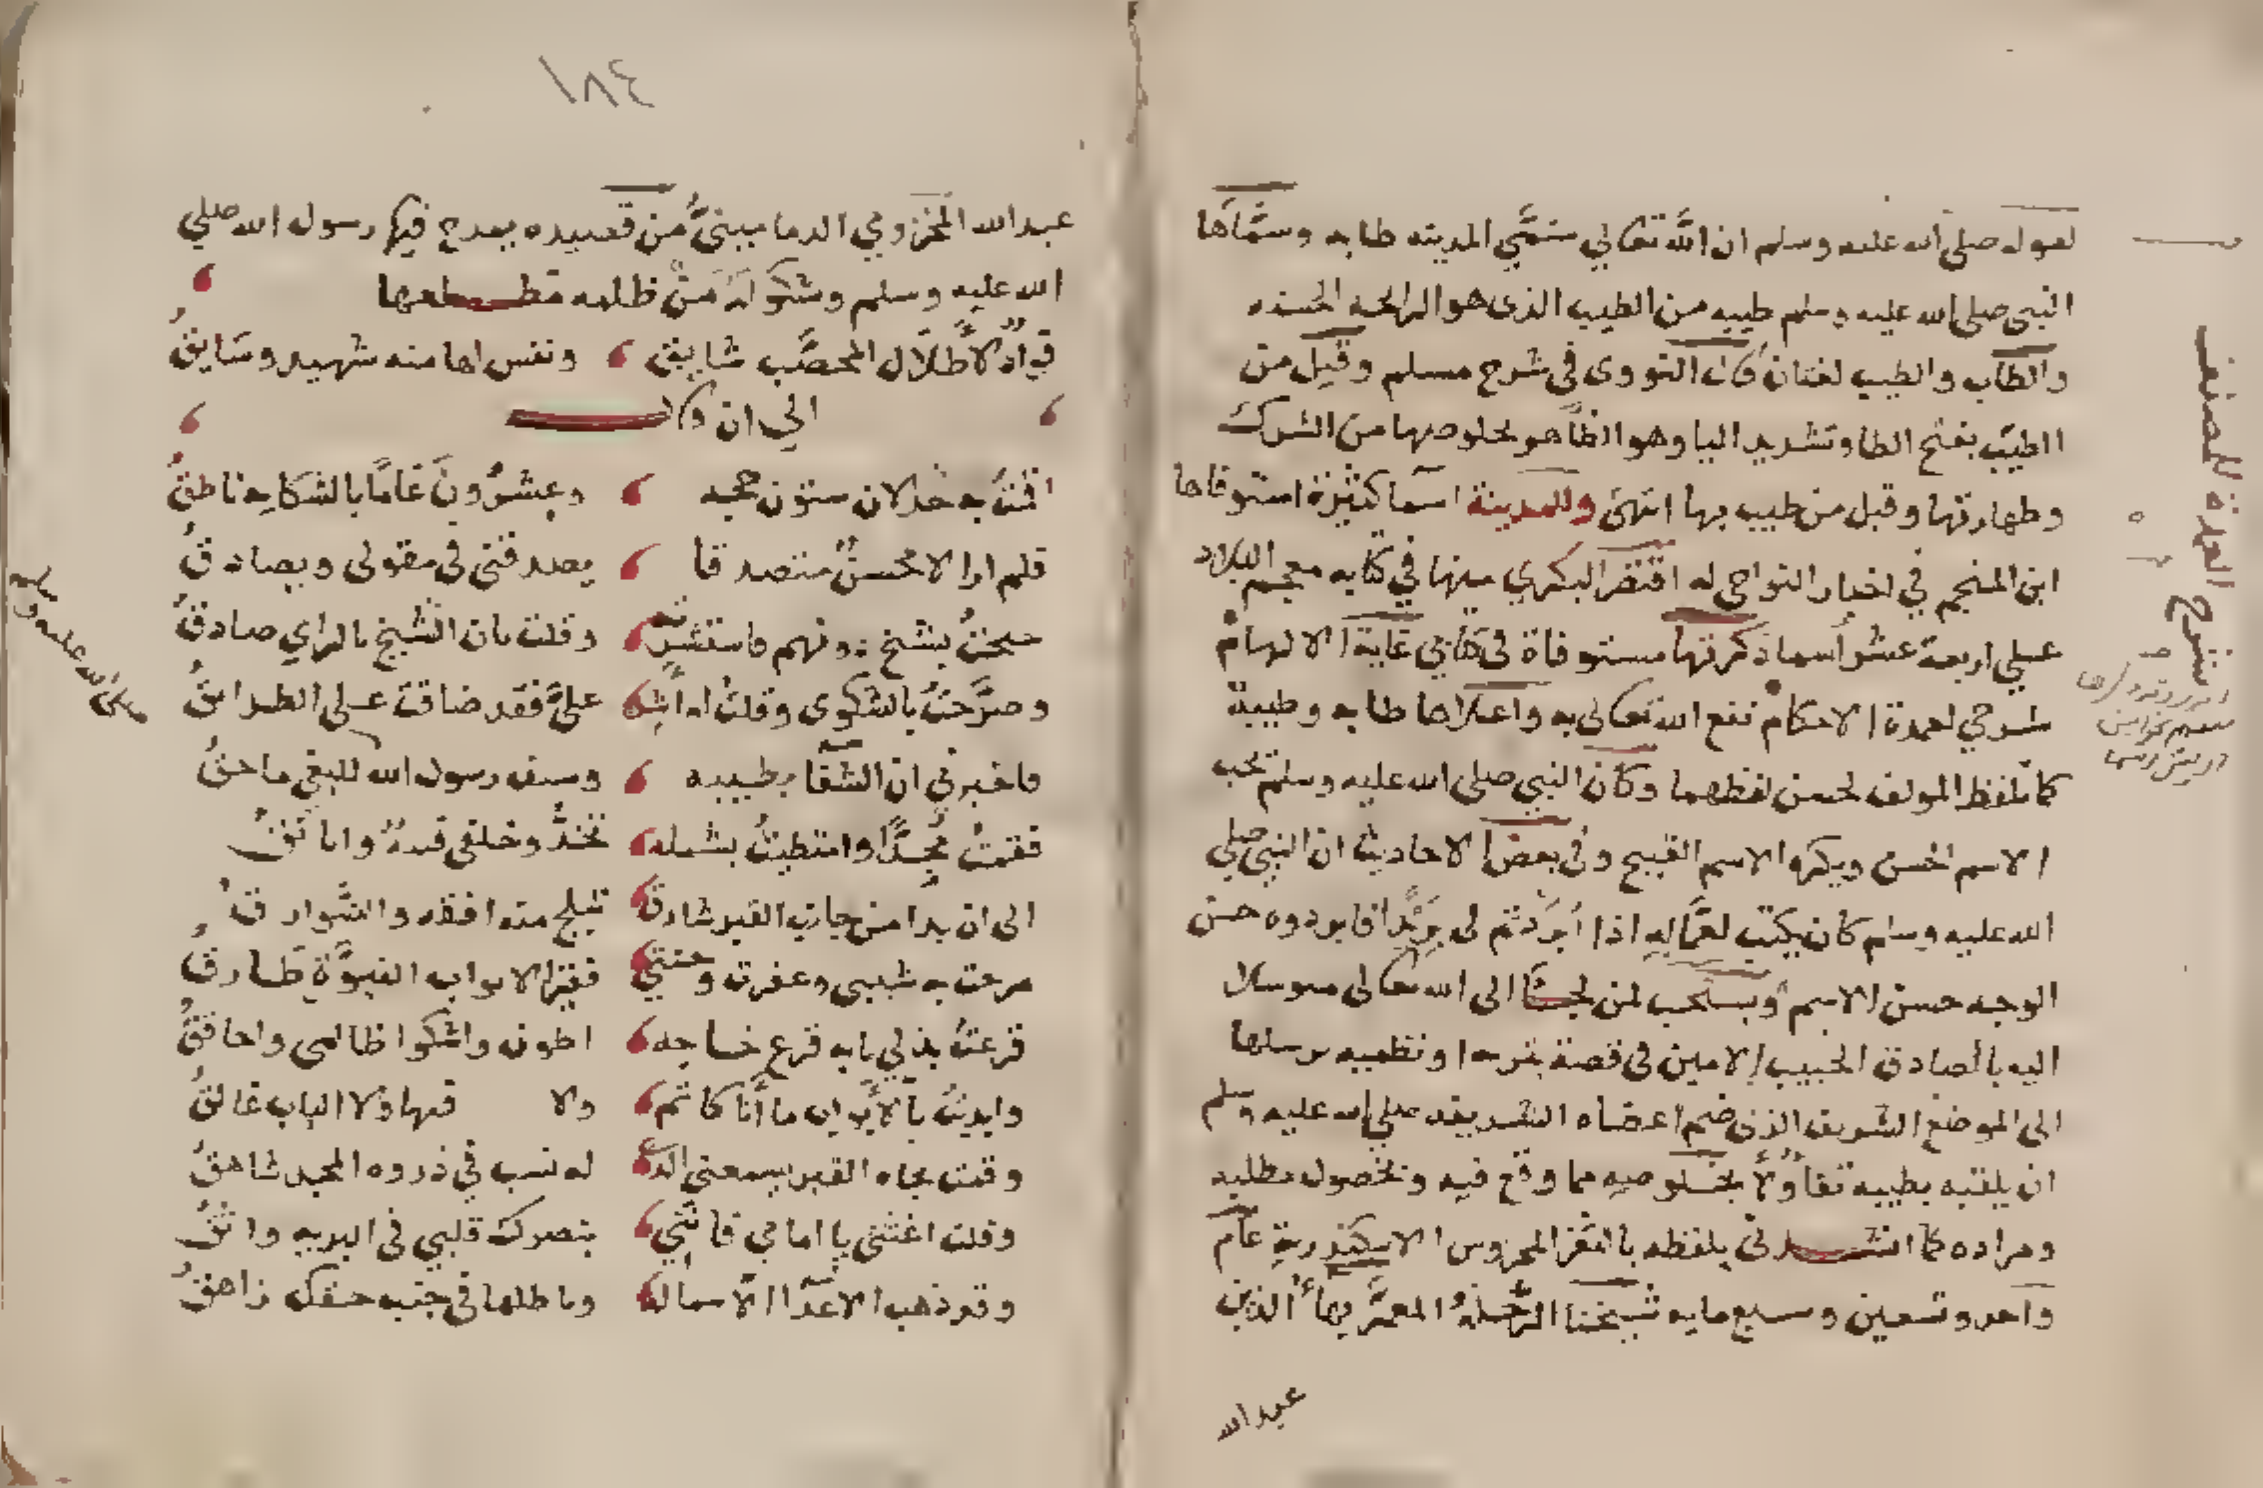 لقوله صلى الله عليه وسلم ان الله تعالى سَمَّي المدينه طابه وسمَّاها
النبي صلى الله عليه وسلم طيبه من الطيب الذى هو الرائحه الحسنه
والطاب والطيب لغتان قال النووى فى شرح مسلم وقيل من
الطيّب بفتح الطا وتشديد اليا وهو الطاهر لخلوصها من الشرك
وطهارتها وقيل من طيب بها انتهى وللمدينة اسما كثيرة استوفاها
ابن المنجم في اخبار النواحى له اقتصر البكري منها في كتابه معجم البلاد
على اربعة عشر اسما ذكرتها مستوفاة فى كتابي غاية الالهام
شرحي لعمدة الاحكام نفع الله تعالى به واعلاها طابه وطيبة
كما تلفظ المولف لحسن لفظهما وكان النبي صلى الله عليه وسلم يحب
الاسم الحسن ويكره الاسم القبيح وفى بعض الاحاديث ان النبي صلي
الله عليه وسلم كان يكتب لعماله اذا ابردتم لى بريدا فابردوه حسن
الوجه حسن الاسم ويستحب لمن لجا الى الله تعالى متوسلا
اليه بالصادق الحبيب الامين فى قصة يرسلها
الى الموضع الشريف الذى ضم اعضاه الشريفه صلي الله عليه وسلم
ان يلقبه بطيبه تفاولا بخلوصه مما وقع فيه وتحصول مطلبه
ومراده كما انشدنى بلفظه بالثغر المحروس الاسكندرية عام
واحد وتسعين وسبع مايه شيخنا الرُّحَلةُ المعمَّر بهاء الدين
عبدالله
شرح العمدة للمصنف
١٨٤
عبدالله المخزومي الدمامينيُّ من قصيده يمدح فيها رسول الله صلي
الله عليه وسلم وشكوله مَنْ ظلمه مطلعها
فواد لاطلال المحصَّب شايق ، ونفس لها منه شهيد وسَايقُ
الي ان قال
اقمت به خدلان ستون حجه ، وعشرُونَ عَامًا بالشكاحِ ناطقُ
فلم ار الا محسنٌ متصدقا ، يصدقنى فى مقولى ويصادقُ
بشيخ دونهم فاستشرته ، وقلت بان الشيخ بالراي صادقُ
وصرَّحتُ بالشكوى وقلت عليَّ فقد ضاقت على الطرايقُ
فاخبرني ان الشفا بطيبه ، وسيف رسول الله للبغي ماحقُ
فقمتُ مُجدًّا وامتطيتُ بشمله ، تخدُّ وخلفى
الى ان بدا من جانب القبر شارق ، تبلج منه افقه والشوارقُ
مرغت به شيبى وعفرت وجنتي ، فقيرا لابواب النبوَّةِ طارقُ
قرعتُ بذلي بابه قرع خاجه ، اطوف واشكوا ظالمى واحاققُ
وابديتُ بالابواب ما أنا كاتم ، ولا فيها ولا الباب غالقُ
وقمت تجاه القبر له نسب في ذروه المجد شاهقُ
وقلت اغثنى يا امامي فاننى ، بنصرك قلبي فى البريه واثقُ
وقد ذهب الاعدا وباطلها في جنب حقك زاهقُ
صلى الله عليه وسلم